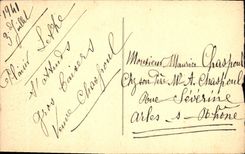 1941
3 Juillet
Plaisir Lettre
J'attends
gros baisers
Veuve Chaspoul
Monsieur Maurice Chaspoul
Chez son Père Mr A. Chaspoul
Rue Séverine
Arles s- Rhône